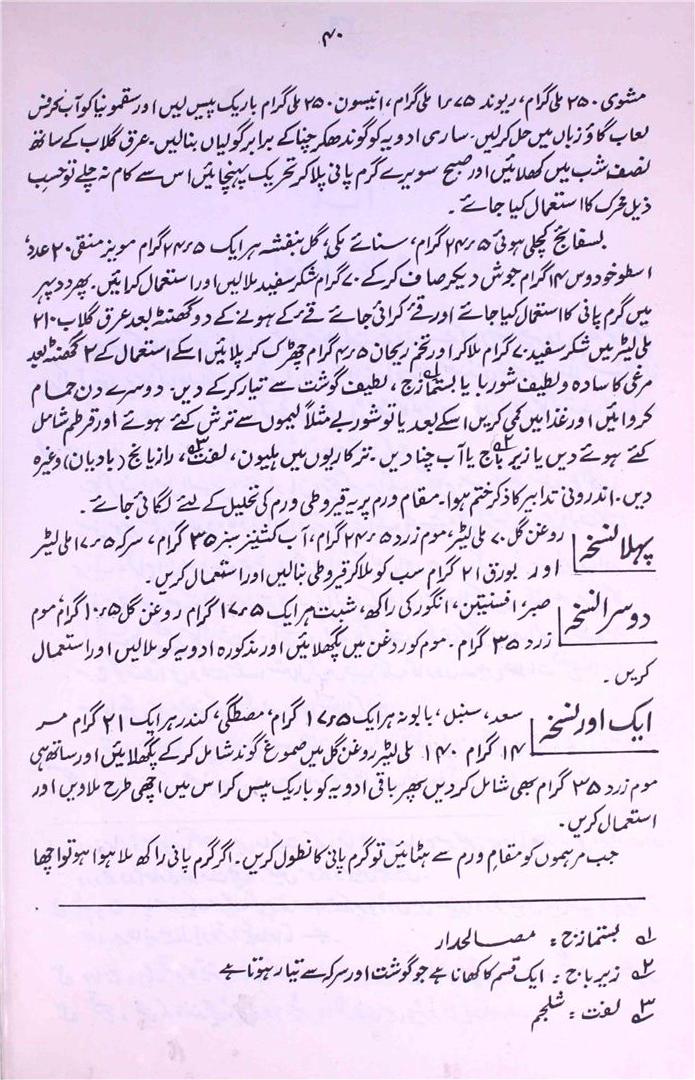 ۴۰
مشوی ۲۵۰ ملی گرام، ریوند ۷۵ء۱ ملی گرام، انیسون ۲۵۰ ملی گرام باریک پیس لیں اور سقمونیا کو آب کرفس
لعاب گاؤزباں میں حل کرلیں۔ ساری ادویہ کو گوندھ کر چنا کے برابر گولیاں بنالیں۔ عرق گلاب کے ساتھ
نصف شب میں کھلائیں اور صبح سویرے گرم پانی پلاکر تحریک پہنچائیں اس سے کام نہ چلے تو حسب
ذیل محرک کا استعمال کیا جائے۔
بسفائج کچلی ہوئی ۵ء۲۴ گرام، سنائے مکی، گل بنفشہ ہر ایک ۵ء۲۴ گرام مویز منقی ۲۰ عدد،
اسطوخودوس ۱۴ گرام جوش دیکر صاف کرکے ۷۰ گرام شکر سفید ملالیں اور استعمال کرائیں۔ پھر دوپہر
میں گرم پانی کا استعمال کیا جائے اور قے کرائی جائے قے کے ہونے کے دو گھنٹہ بعد عرق گلاب ۲۱۰
ملی لیٹر میں شکر سفید ۷۰ گرام ملاکر اور تخم ریحان ۵ء۴ گرام چھڑک کر پلائیں اسکے استعمال کے ۲ گھنٹہ بعد
مرغی کا سادہ و لطیف شوربا یا بستمازج۱؎، لطیف گوشت سے تیار کرکے دیں۔ دوسرے دن حمام
کروائیں اور غذا میں کمی کریں اسکے بعد یا تو شوربے مثلاً لیموں سے ترش کئے ہوئے اور قرطم شامل
کئے ہوئے دیں یا زیرباج۲؎ یا آب چنا دیں۔ ترکاریوں میں ہلیون، لفت۳؎، رازیانج (بادیان) وغیرہ
دیں۔ اندرونی تدابیر کا ذکر ختم ہوا۔ مقام ورم پر یہ قیروطی ورم کی تحلیل کے لئے لگائی جائے۔
پہلا نسخہ روغن گل ۷۰ ملی لیٹر، موم زرد ۵ء۲۴ گرام، آب کشنیز سبز ۳۵ گرام، سرکہ ۵ء۱۷ ملی لیٹر
اور بورق ۲۱ گرام سب کو ملاکر قیروطی بنالیں اور استعمال کریں۔
دوسرا نسخہ صبر، افسنتین، انگور کی راکھ، شبت ہر ایک ۵ء۱۷ گرام روغن گل ۵ء۱۰ گرام، موم
زرد ۳۵ گرام۔ موم کو روغن میں پگھلائیں اور مذکورہ ادویہ کو ملالیں اور استعمال
کریں۔
ایک اور نسخہ سعد، سنبل، بابونہ ہر ایک ۵ء۱۷ گرام، مصطگی، کندر ہر ایک ۲۱ گرام مر
۱۴ گرام ۱۴۰ ملی لیٹر روغن گل میں صموغ گوند شامل کرکے پگھلائیں اور ساتھ ہی
موم زرد ۳۵ گرام بھی شامل کردیں پھر باقی ادویہ کو باریک پیس کر اس میں اچھی طرح ملاویں اور
استعمال کریں۔
جب مرہموں کو مقام ورم سے ہٹائیں تو گرم پانی کا نطول کریں۔ اگر گرم پانی راکھ ملا ہوا ہو تو اچھا
۱؎ بستمازج = مصالحدار
۲؎ زیرباج = ایک قسم کا کھانا ہے جو گوشت اور سرکہ سے تیار ہوتا ہے
۳؎ لفت = شلجم